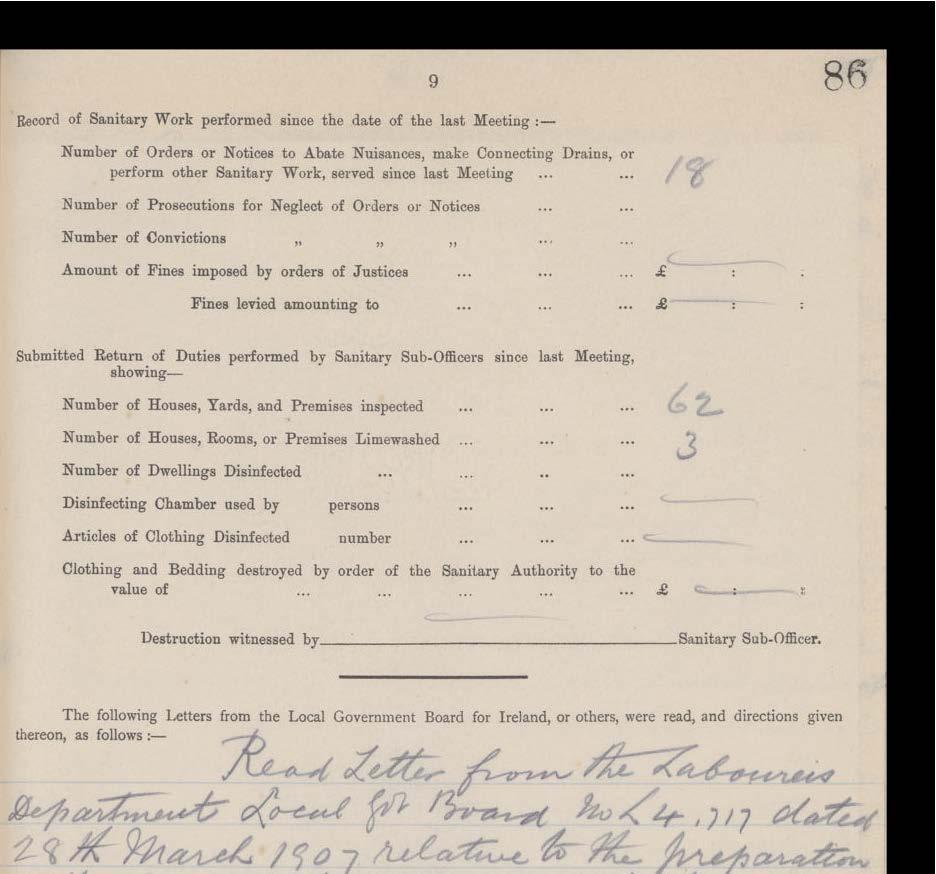 9
86
Record of Sanitary Work performed since the date of the last Meeting :—
Number of Orders or Notices to Abate Nuisances, make Connecting Drains, or
perform other Sanitary Work, served since last Meeting ... ... 18
Number of Prosecutions for Neglect of Orders or Notices ... ...
Number of Convictions „ „ „ ... ...
Amount of Fines imposed by orders of Justices ... ... ... £ : :
Fines levied amounting to ... ... ... £ : :
Submitted Return of Duties performed by Sanitary Sub-Officers since last Meeting,
showing—
Number of Houses, Yards, and Premises inspected ... ... ... 62
Number of Houses, Rooms, or Premises Limewashed ... ... ... 3
Number of Dwellings Disinfected ... ... .. ...
Disinfecting Chamber used by persons ... ... ...
Articles of Clothing Disinfected number ... ... ...
Clothing and Bedding destroyed by order of the Sanitary Authority to the
value of ... ... ... ... ... £ : :
Destruction witnessed by Sanitary Sub-Officer.
The following Letters from the Local Government Board for Ireland, or others, were read, and directions given
thereon, as follows :—
Read Letter from the Laboureis
Department Local Gov Board No L 4,717 dated
28th March 1907 relative to the preparation